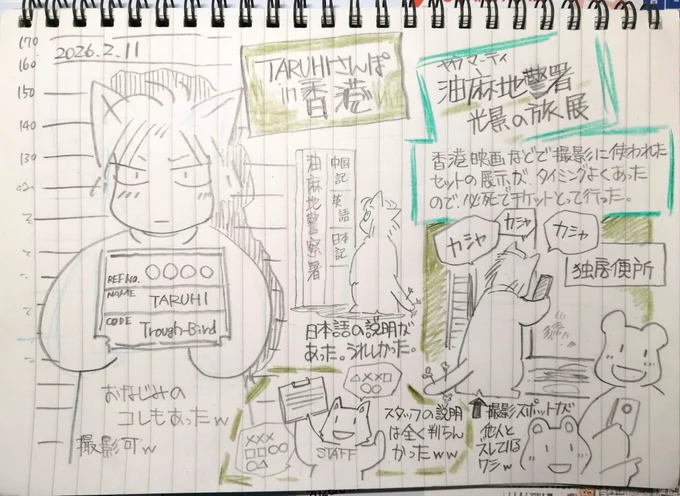 170
160
150
140
130
2026.2.11
TARUHIさんぽ
in 香港
ヤウマーティ
油麻地警署
光景の旅展
香港映画などで撮影に使われた
セットの展示が、タイミングよくあった
ので、必死でチケットとって行った。
油麻地警察署
中国記
英語
日本記
カシャ
カシャ
カシャ
独房便所
REF NO. ○○○○
NAME TARUHI
CODE Trough-Bird
日本語の説明が
あった。うれしかった。
おなじみの
コレもあったw
撮影可w
△××□
○○
×××
□□○○
○△
STAFF
スタッフの説明
は全く判らん
かったww
↑撮影スポットが
他人と
ズレてる
ワシw